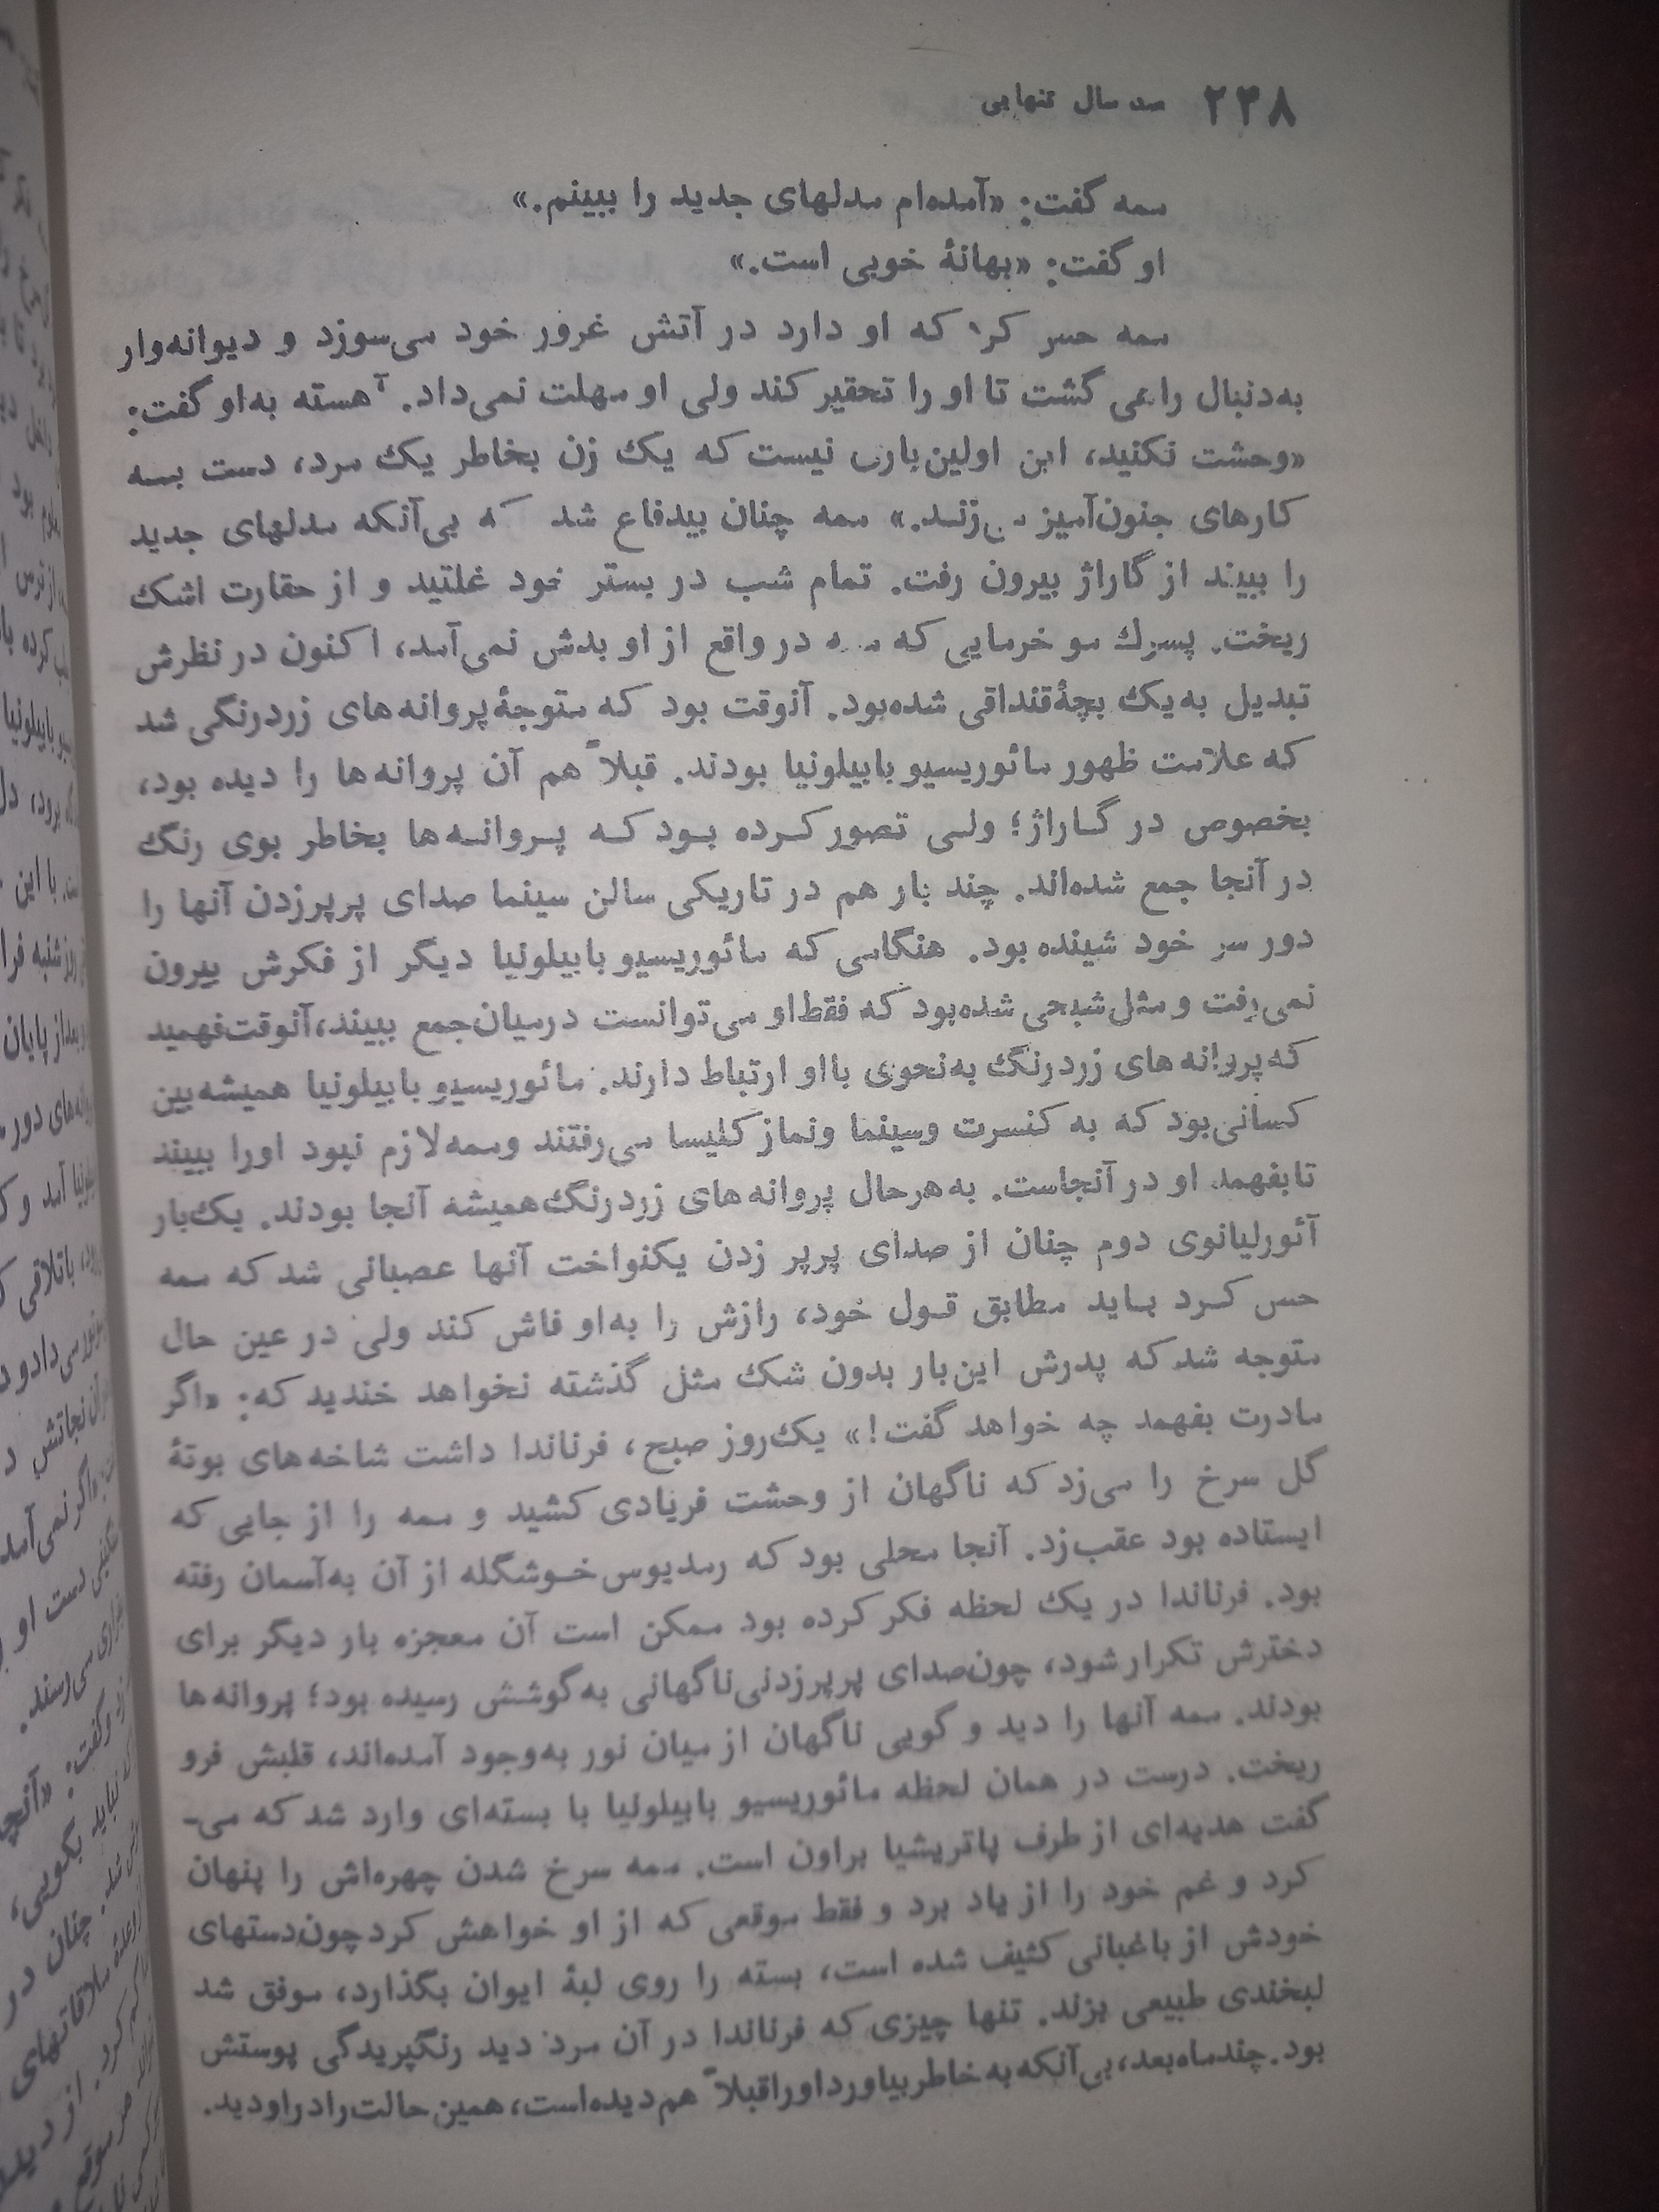 ۲۳۸ صد سال تنهایی
ممه گفت: «آمده‌ام مدلهای جدید را ببینم.»
او گفت: «بهانهٔ خوبی است.»
ممه حس کرد که او دارد در آتش غرور خود می‌سوزد و دیوانه‌وار
به‌دنبال راهی گشت تا او را تحقیر کند ولی او مهلت نمی‌داد. آهسته به‌او گفت:
«وحشت نکنید، این اولین‌باری نیست که یک زن بخاطر یک مرد، دست بـه
کارهای جنون‌آمیز می‌زند.» ممه چنان بیدفاع شد که بی‌آنکه مدلهای جدید
را ببیند از گاراژ بیرون رفت. تمام شب در بستر خود غلتید و از حقارت اشک
ریخت. پسرک مو خرمایی که در واقع از او بدش نمی‌آمد، اکنون در نظرش
تبدیل به‌یک بچهٔ قنداقی شده‌بود. آنوقت بود که متوجهٔ پروانه‌های زردرنگی شد
که علامت ظهور مائوریسیو بابیلونیا بودند. قبلاً هم آن پروانه‌ها را دیده بود،
بخصوص در گـاراژ؛ ولـی تصور کـرده بـود کـه پـروانـه‌ها بخاطر بوی رنگ
در آنجا جمع شده‌اند. چند بار هم در تاریکی سالن سینما صدای پرپرزدن آنها را
دور سر خود شینده بود. هنگامی که مائوریسیو بابیلونیا دیگر از فکرش بیرون
نمی‌رفت و مثل شبحی شده‌بود که فقط او می‌توانست درمیان جمع ببیند، آنوقت فهمید
که پروانه‌های زردرنگ به‌نحوی بااو ارتباط دارند. مائوریسیو بابیلونیا همیشه بین
کسانی‌بود که به کنسرت وسینما ونماز کلیسا می‌رفتند وممه لازم نبود اورا ببیند
تابفهمد او در آنجاست. به‌هرحال پروانه‌های زردرنگ همیشه آنجا بودند. یک‌بار
آئورلیانوی دوم چنان از صدای پرپر زدن یکنواخت آنها عصبانی شد که ممه
حس کـرد بـاید مطابق قـول خود، رازش را به‌او فاش کند ولی در عین حال
متوجه شد که پدرش این‌بار بدون شک مثل گذشته نخواهد خندید که: «اگر
مادرت بفهمد چه خواهد گفت!» یک‌روز صبح، فرناندا داشت شاخه‌های بوتهٔ
گل سرخ را می‌زد که ناگهان از وحشت فریادی کشید و ممه را از جایی که
ایستاده بود عقب‌زد. آنجا محلی بود که رمدیوس خـوشگله از آن به‌آسمان رفته
بود. فرناندا در یک لحظه فکر کرده بود ممکن است آن معجزه بار دیگر برای
دخترش تکرار شود، چون صدای پرپرزدنی ناگهانی به‌گوشش رسیده بود؛ پروانه‌ها
بودند. ممه آنها را دید و گویی ناگهان از میان نور به‌وجود آمده‌اند، قلبش فرو
ریخت. درست در همان لحظه مائوریسیو بابیلونیا با بسته‌ای وارد شد که می‌-
گفت هدیه‌ای از طرف پاتریشیا براون است. ممه سرخ شدن چهره‌اش را پنهان
کرد و غم خود را از یاد برد و فقط موقعی که از او خواهش کرد چون دستهای
خودش از باغبانی کثیف شده است، بسته را روی لبهٔ ایوان بگذارد، موفق شد
لبخندی طبیعی بزند. تنها چیزی که فرناندا در آن مرد دید رنگپریدگی پوستش
بود. چند ماه بعد، بی‌آنکه به خاطر بیاورد او را قبلاً هم دیده است، همین حالت را در او دید.